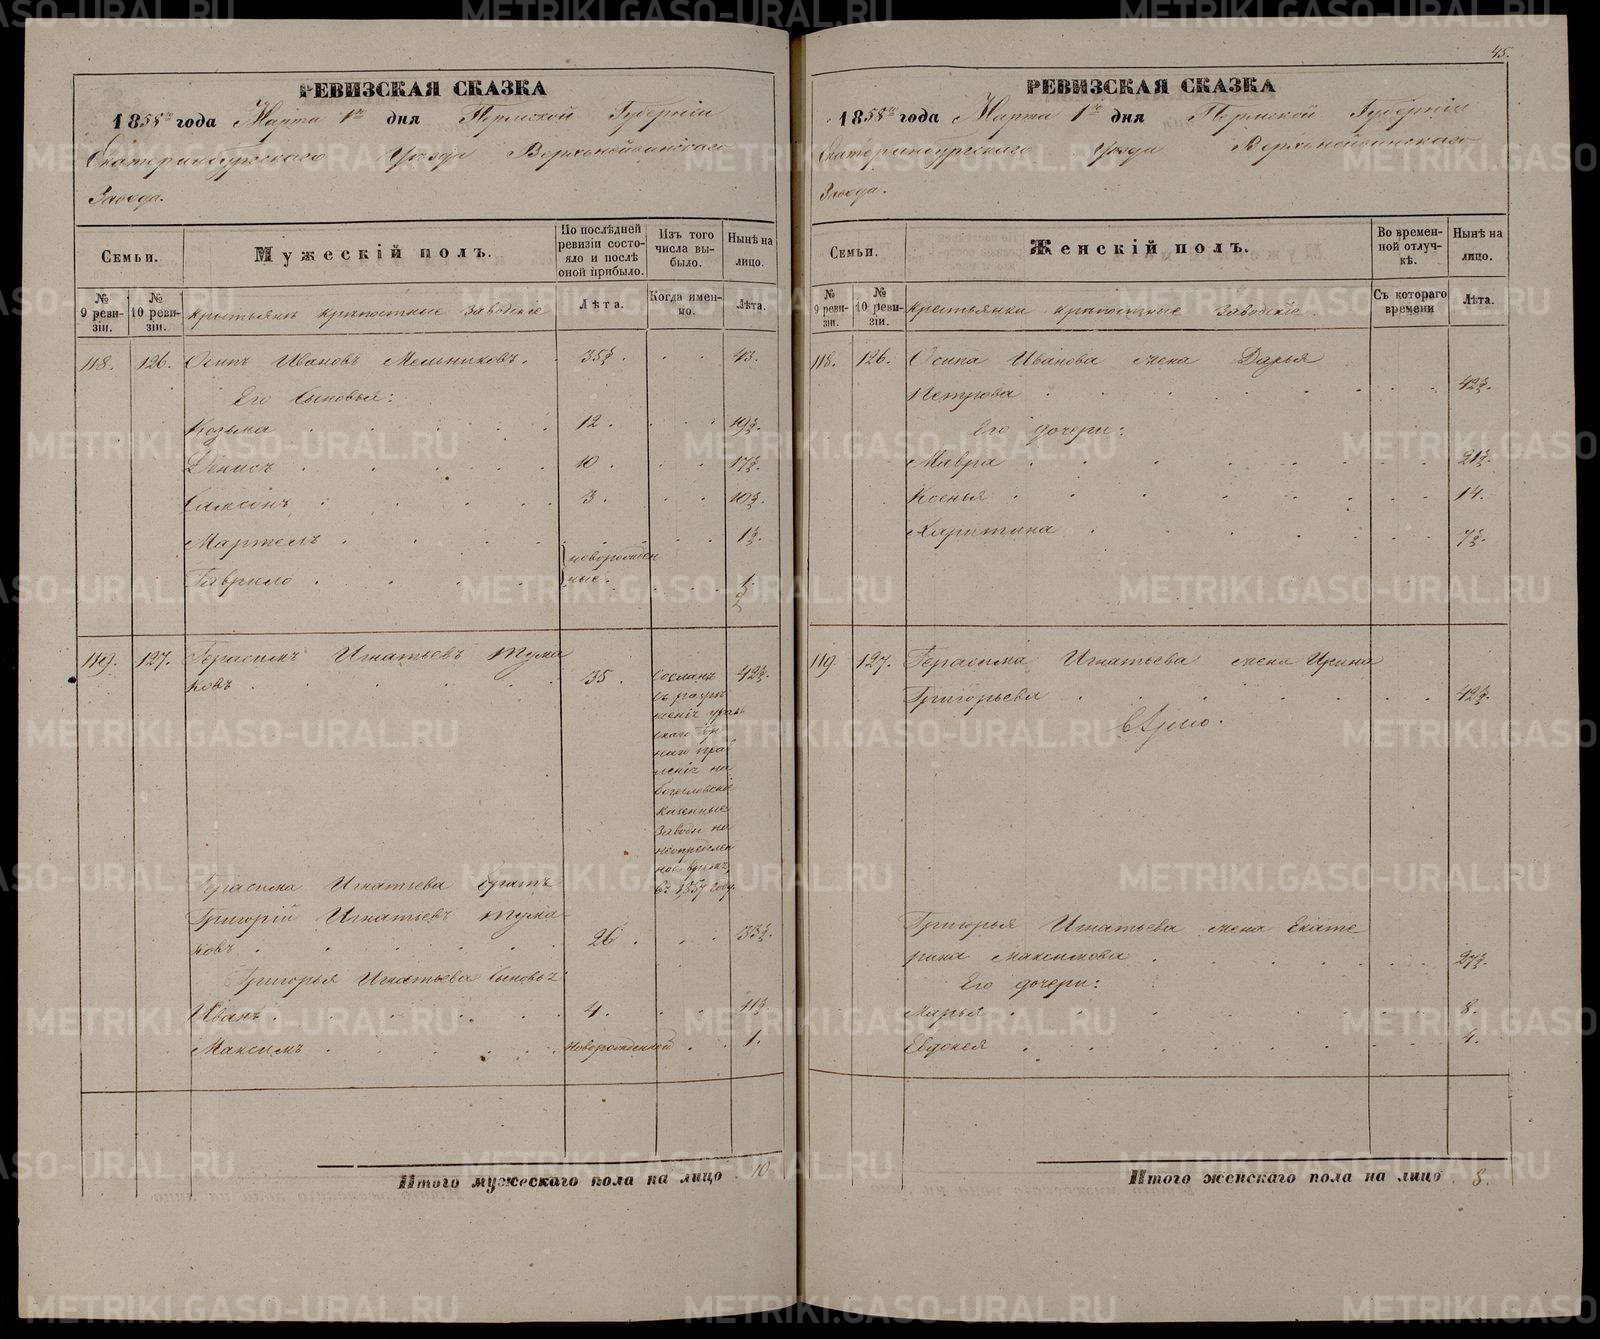 45.
РЕВИЗСКАЯ СКАЗКА
1858го года Марта 1го дня Пермской Губерніи
Екатеринбургскаго Уѣзда Верхънейвинскаго
Завода.
Семьи.
Мужескій полъ.
По послѣдней ревизіи состояло и послѣ оной прибыло.
Изъ того числа выбыло.
Нынѣ на лицо.
№ 9 ревизіи.
№ 10 ревизіи.
Крестьянъ крѣпостные заводскіе
Лѣта.
Когда именно.
Лѣта.
118. 126. Осипъ Ивановъ Мельниковъ. 35½. 43.
Его сыновья:
Козьма 12. 19½.
Денисъ 10. 17½.
Самсонъ 3. 10½.
Мартемъ 1½.
новорожденные.
Гаврило ½.
119. 127. Герасимъ Игнатьевъ Тума
ковъ 35. 42½.
Сосланъ
съ разрѣ
шенія Ураль
скаго Гор
наго Прав
ленія на
Богословскіе
казенные
заводы на
неопредѣлен
ное время
въ 1857 году.
Герасима Игнатьева братъ
Григорій Игнатьевъ Тума
ковъ 26. 33½.
Григорья Игнатьева сыновья
Иванъ 4. 11½.
Максимъ Новорожденной 1.
Итого мужескаго пола на лицо 10
РЕВИЗСКАЯ СКАЗКА
1858го года Марта 1го дня Пермской Губерніи
Екатеринбургскаго Уѣзда Верхънейвинскаго
Завода.
Семьи.
Женскій полъ.
Во временной отлучкѣ.
Нынѣ на лицо.
№ 9 ревизіи.
№ 10 ревизіи.
Крестьянки крѣпостные заводскіе.
Съ котораго времени
Лѣта.
118. 126. Осипа Иванова жена Дарья
Петрова 42½.
Его дочери:
Мавра 21½.
Ксенья 14.
Харитина 7½.
119. 127. Герасима Игнатьева жена Ирина
Григорьева 42½.
Григорья Игнатьева жена Екате
рина Максимова 27½.
Его дочери:
Марья 8.
Евдокея 4.
Итого женскаго пола на лицо 8.
METRIKI.GASO-URAL.RU